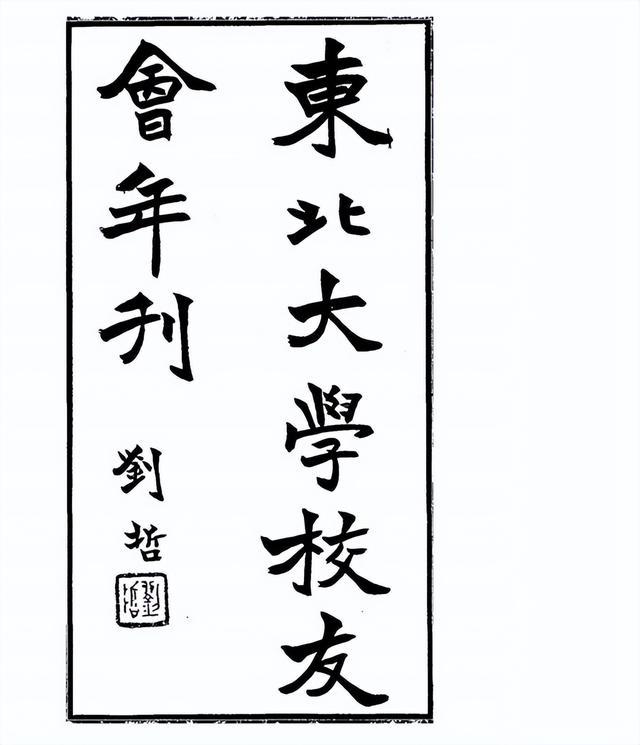 東北大學校友
會年刊
劉哲